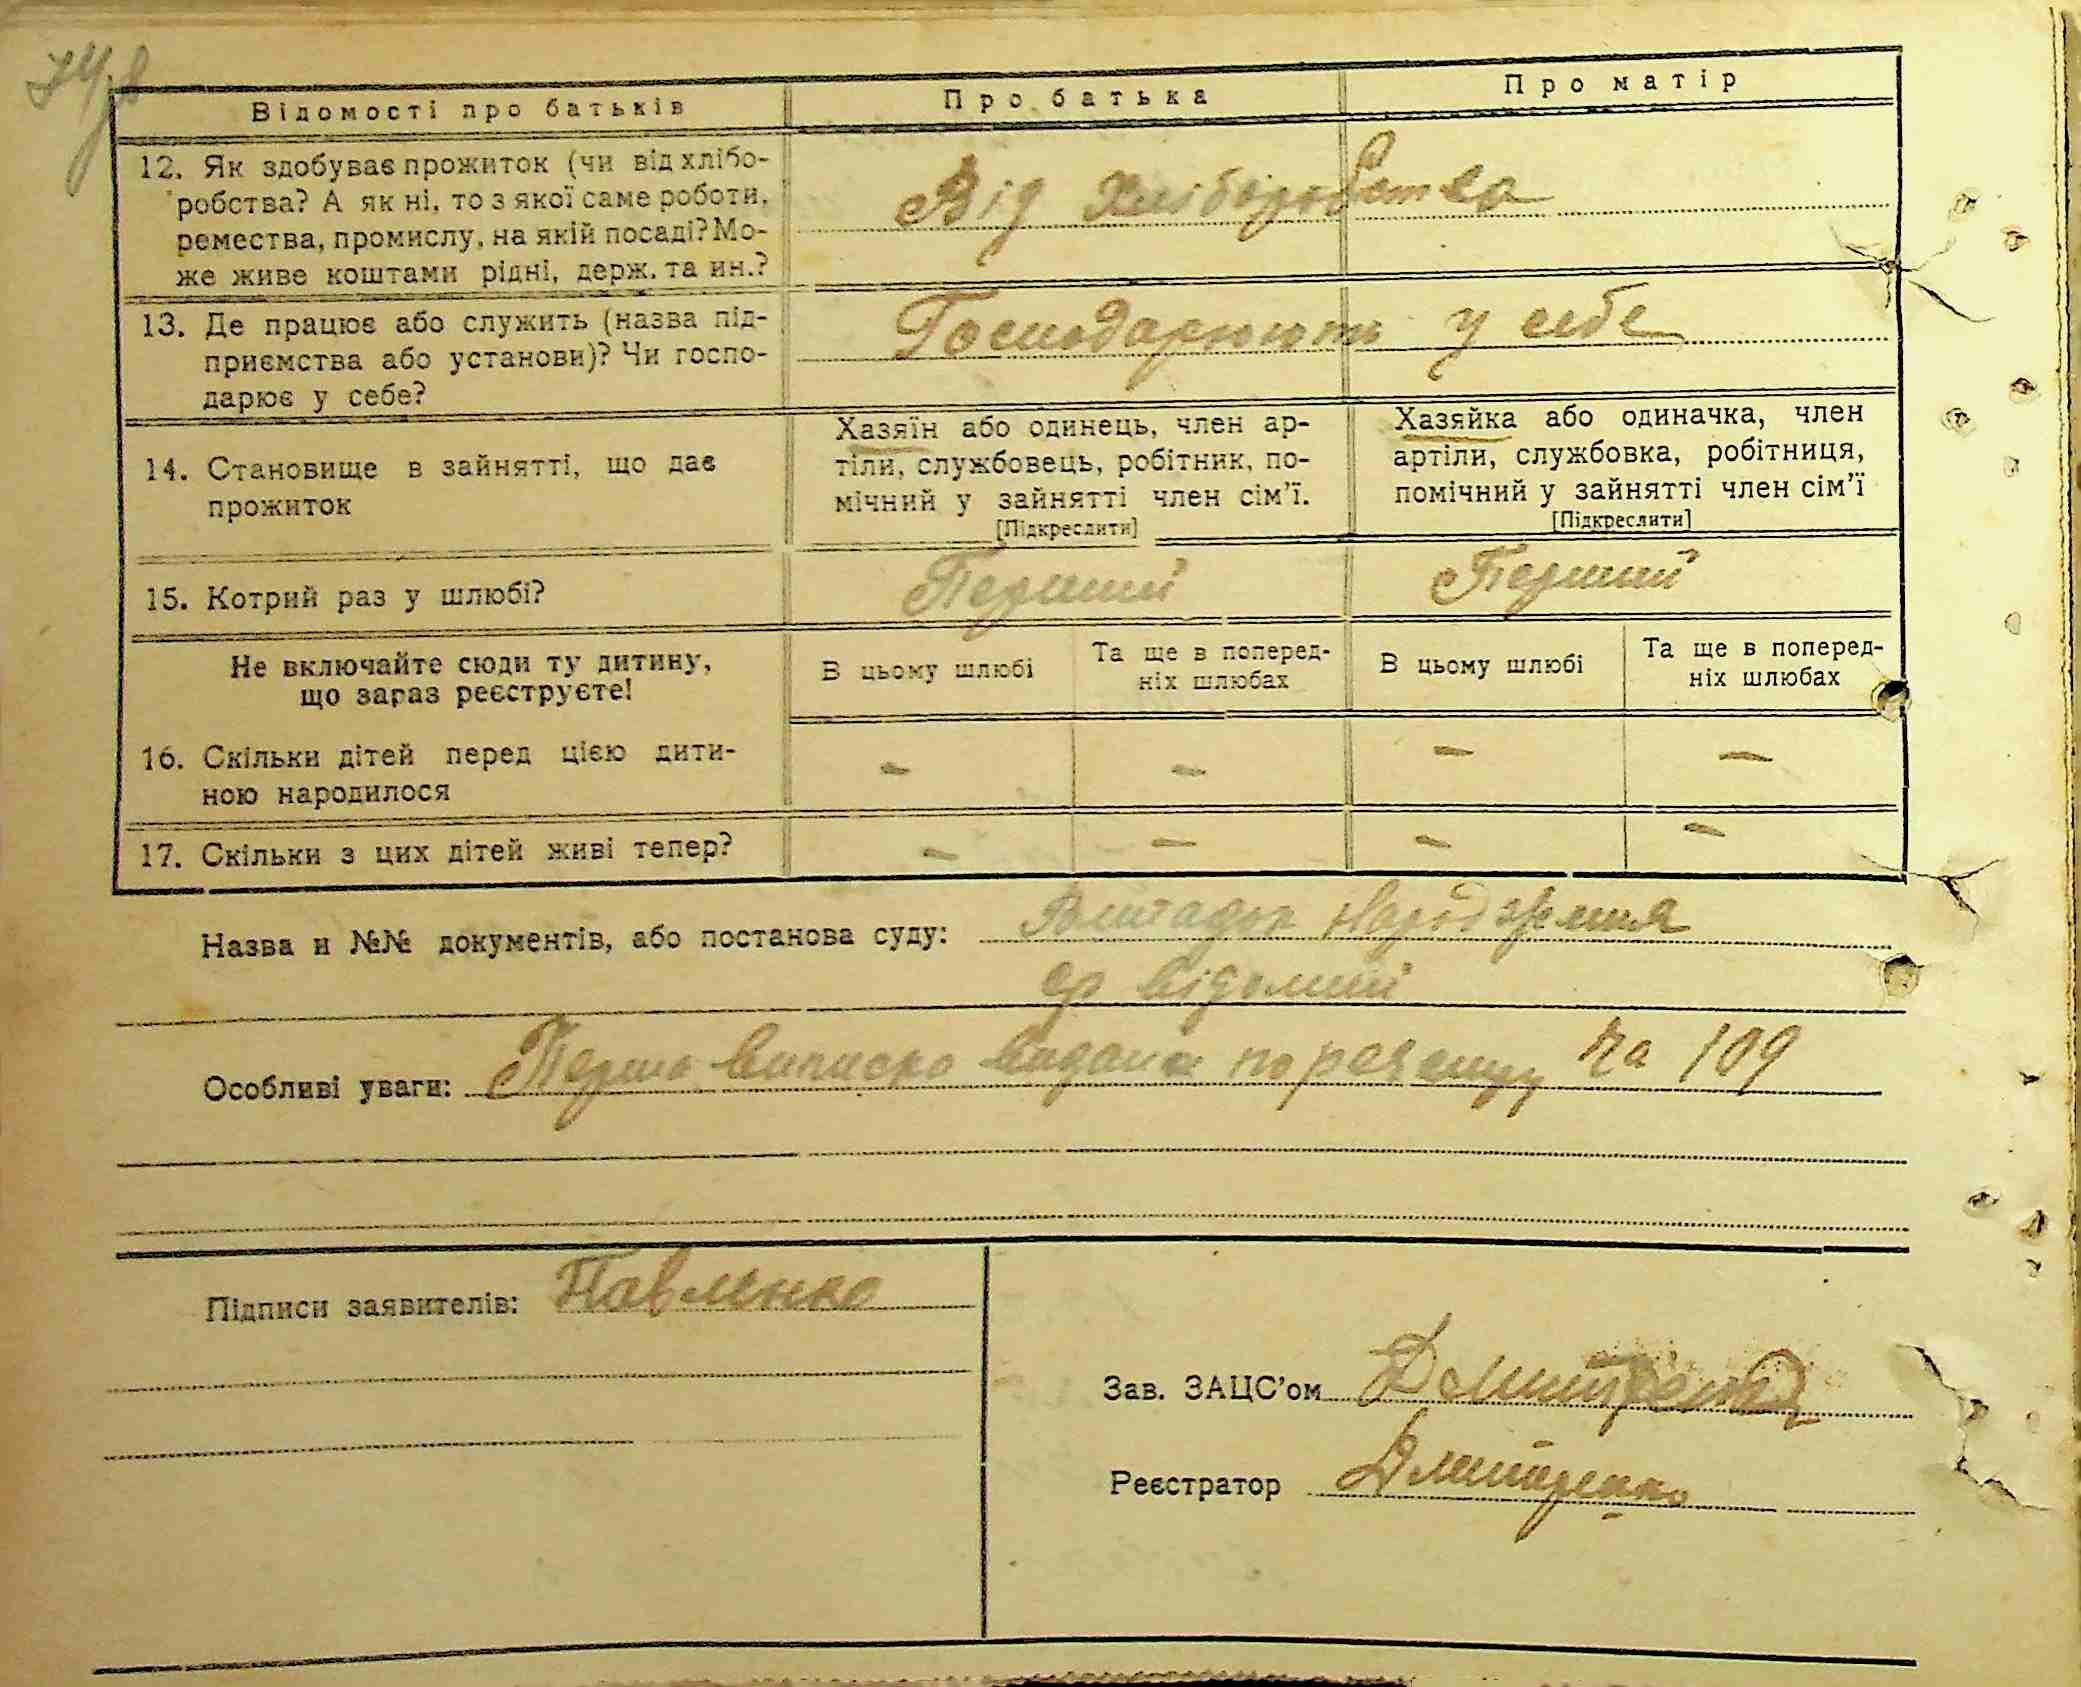 Відомості про батьків
Про батька
Про матір
12. Як здобуває прожиток (чи від хлібо-
робства? А як ні, то з якої саме роботи,
ремества, промислу, на якій посаді? Мо-
же живе коштами рідні, держ. та ин.?
Від хліборобства
13. Де працює або служить (назва під-
приємства або установи)? Чи госпо-
дарює у себе?
Господарюють у себе
14. Становище в зайнятті, що дає
прожиток
Хазяїн або одинець, член ар-
тіли, службовець, робітник, по-
мічний у зайнятті член сім’ї.
[Підкреслити]
Хазяйка або одиначка, член
артіли, службовка, робітниця,
помічний у зайнятті член сім’ї
[Підкреслити]
15. Котрий раз у шлюбі?
Перший
Перший
Не включайте сюди ту дитину,
що зараз реєструєте!
В цьому шлюбі
Та ще в поперед-
ніх шлюбах
В цьому шлюбі
Та ще в поперед-
ніх шлюбах
16. Скільки дітей перед цією дити-
ною народилося
– – – –
17. Скільки з цих дітей живі тепер?
– – – –
Назва и №№ документів, або постанова суду: народження
відомий
Особливі уваги: Перша виписка видана по реєстру на 109
Підписи заявителів: Павленко
Зав. ЗАЦС’ом Дмитренко
Реєстратор Дмитренко